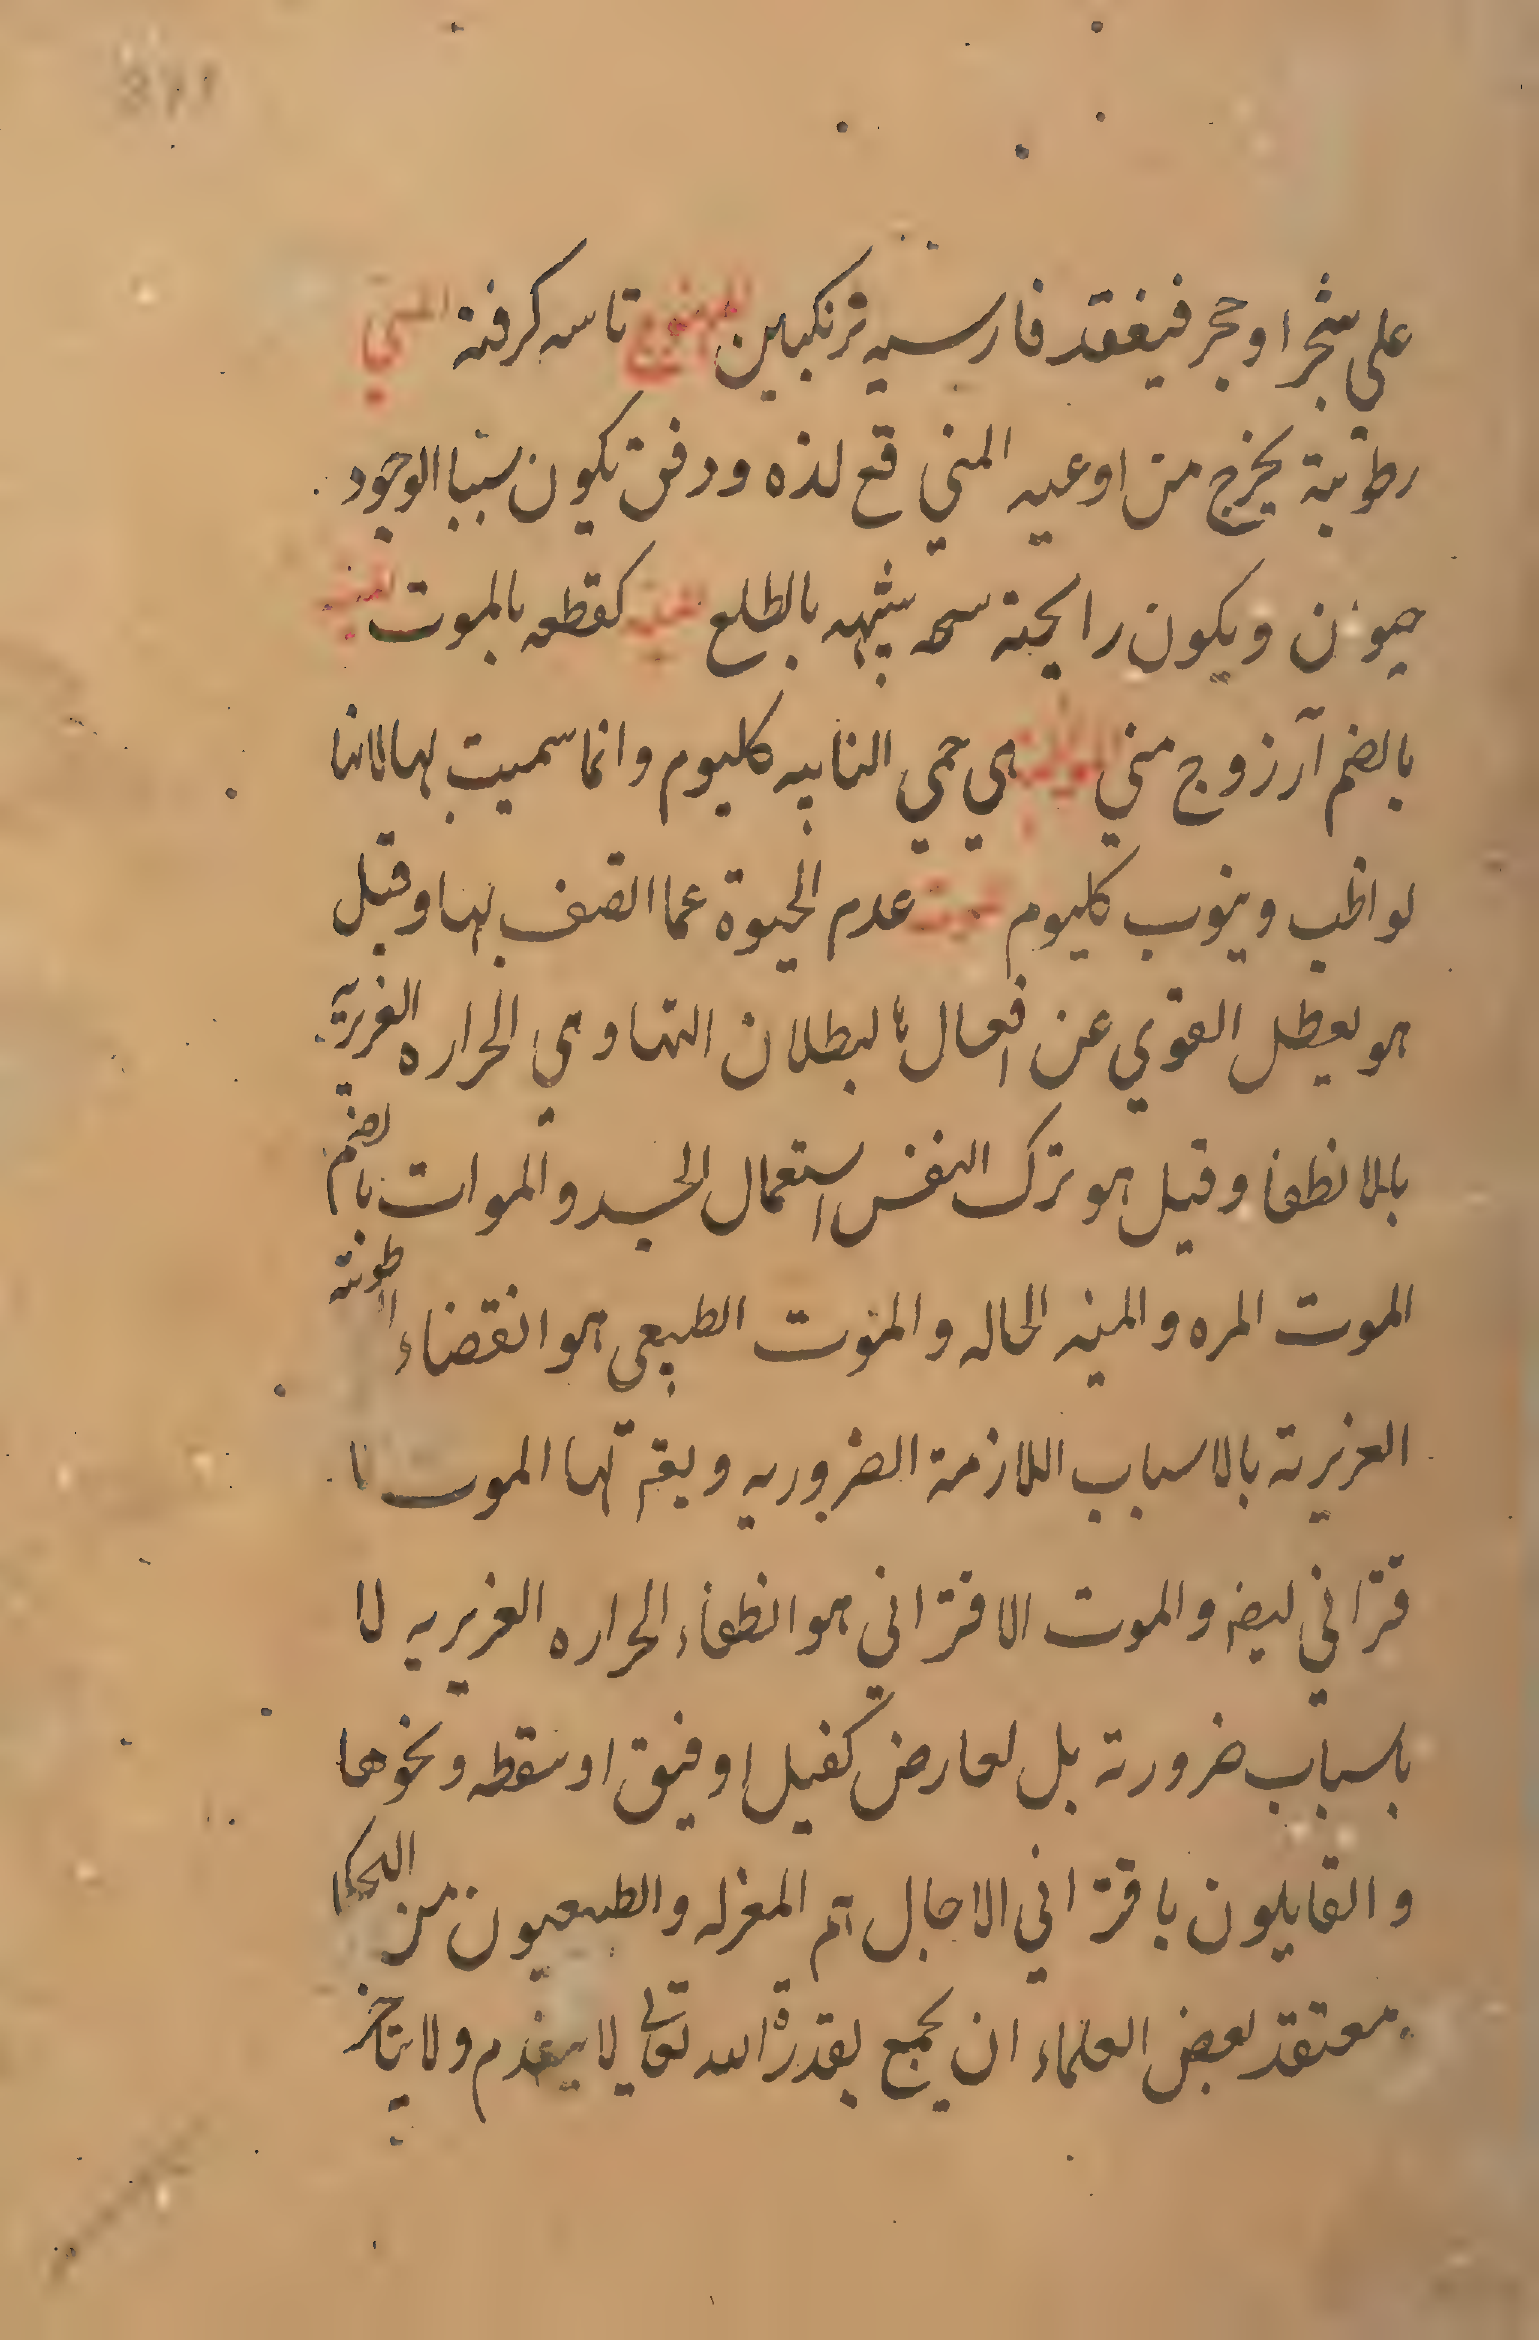 علي شجر او حجر فيغقد فارسيه ترنكبين تاسه كرفته المني
رطوبة يخرج من اوعيه المني قع لذه و دفق يكون سببا الوجود
حيون ويكون رايحته سمه شبهه بالطلع كقطعه بالموت
بالضم آرزوج مني هي حمي النايبه كليوم وانما سميت بها لانها
لواظب وينوب كليوم الموت عدم الحيوة عما اتصف بها وقيل
هو تعطل القوي عن افعالها لبطلان التهاوي الحراره الغريزيه
بالانطفا وقيل هو ترك النفس استعمال الجسد والموات بالضم
الموت المره والميته الحاله والموت الطبيعي هو انقضاء الرطوبته
الغريزية بالاسباب اللازمة الضروريه ويقم لها الموت الا
قتراني ليضم والموت الاقتراني هو انطفاء الحراره الغريزيه لا
باسباب ضرورة بل لعارض كفيل او فيق او سقطه ونحوها
والقايلون باقتراني الاجال هم المعزله والطبيعيون من الحكما
معتقد بعض العلماء ان يجمع بقدرة الله تعالي لا يتقدم ولا يتاخر